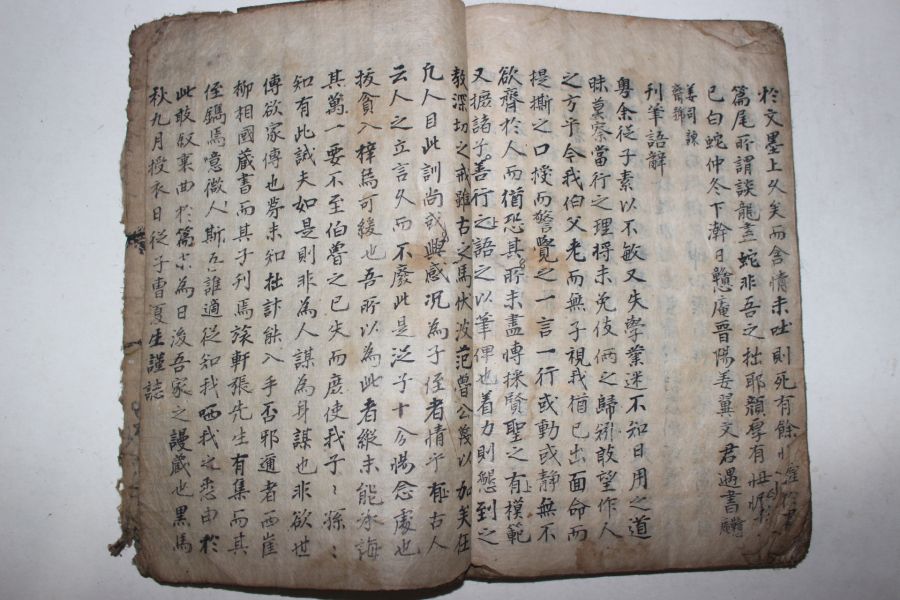 於文墨上久矣而含情未吐則死有餘
篇尾所謂談龍畫蛇非吾之拙耶顔厚有忸怩
已白蛇仲冬下澣日戅庵晉陽姜翼文君遇書
姜司諫
刊筆語解
粤余從子素以不敏又失學業迷不知日用之道
昧莫察當行之理將未免伎倆之歸矧敢望作人
之方乎令我伯父老而無子視我猶已出面命而
提撕之口授而警覺之一言一行或動或静無不
欲齊於人而猶恐其所未盡傳採賢聖之有模範
又摭諸子善行之語之以筆俾也着力則懇到之
教深切之戒雖古之馬伏波范魯公蔑以加矣在
凡人目此訓尚或興感况為子侄者情乎有古人
云人之立言久而不廢此是從子十分惕念處也
拔貪入梓烏可緩也吾所以為此者縱未能承誨
其萬一要不至伯魯之已失而庶使我子〻孫〻
知有此誠夫如是則非為人謀為身謀也非欲世
傳欲家傳也第未知拙計能入手否邪邇者西崖
柳相國蔵書而其子刊焉旅軒張先生有集而其
侄鐫焉噫微人斯吾誰適從知我哂我之悉由於
此敢叙裏曲於篇末為日後吾家之謾蔵也黒馬
秋九月授衣日從子曺夏生謹誌